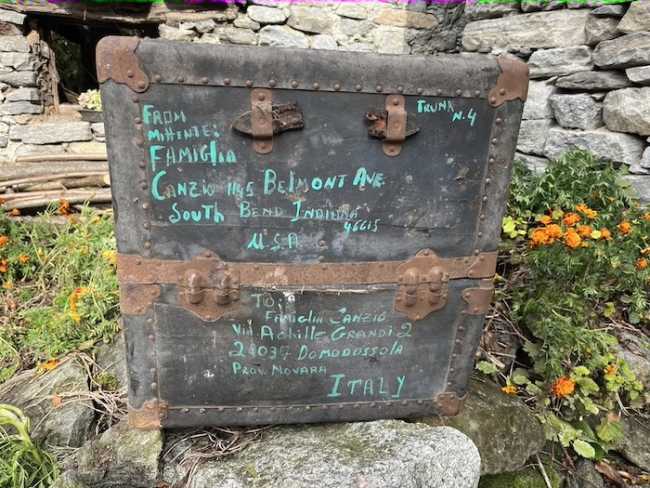 FROM
MITTENTE:
FAMIGLIA
CANZIO 1145 BELMONT AVE.
SOUTH BEND INDIANA
46615
U.S.A.
TRUNK
N.4
TO:
FAMIGLIA CANZIO
VIA ACHILLE GRANDI 2
28037 DOMODOSSOLA
PROV. NOVARA
ITALY